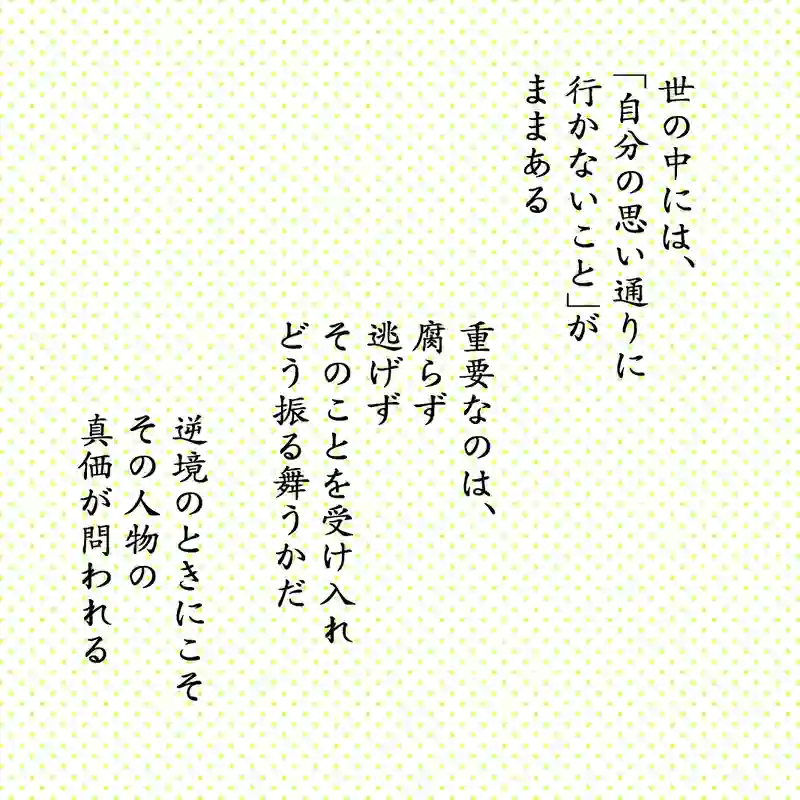 世の中には、
「自分の思い通りに
行かないこと」が
ままある
重要なのは、
腐らず
逃げず
そのことを受け入れ
どう振る舞うかだ
逆境のときにこそ
その人物の
真価が問われる